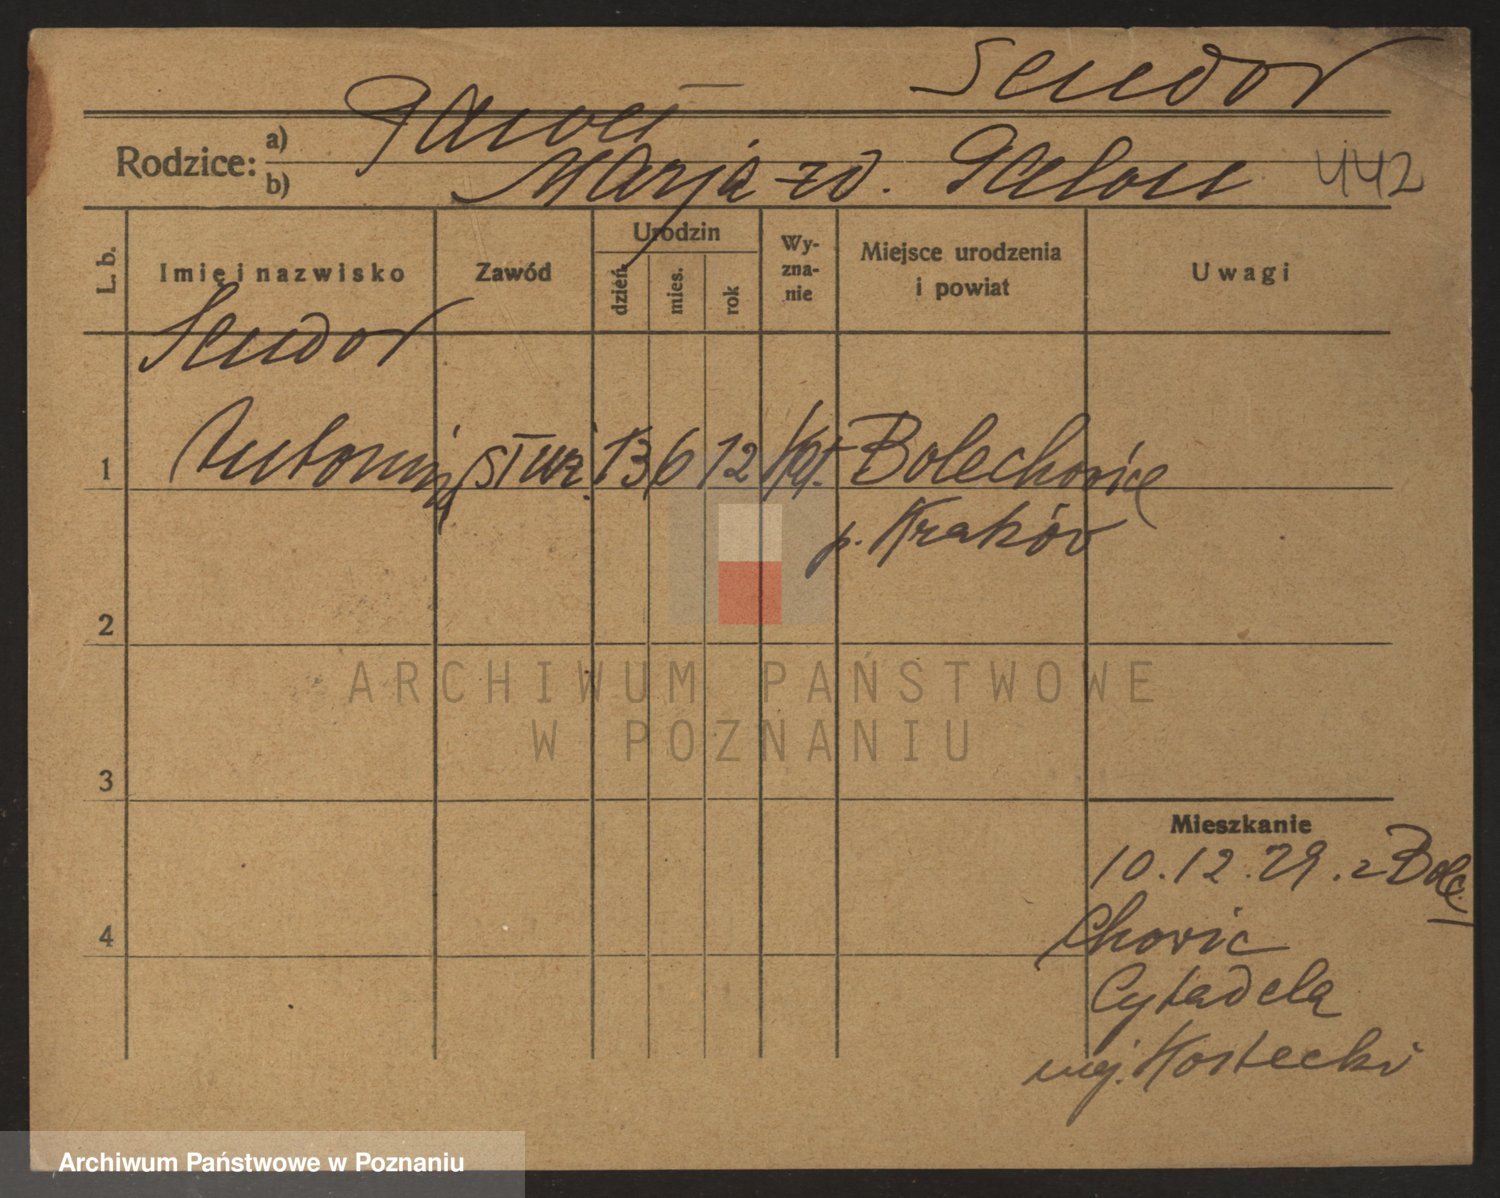 Sendor
Rodzice: a) Paweł
b) Marja zd. 442
L. b. Imię i nazwisko Zawód Urodzin dzień mies. rok Wy-zna-nie Miejsce urodzenia i powiat Uwagi
Sendor
1 Antonina służ. 13 6 12 kat. Bolechowice
p. Kraków
2
3
4
Mieszkanie
10.12.29. z Bole
chowic
Cytadela
mj. Kostecki
ARCHIWUM PAŃSTWOWE
W POZNANIU
Archiwum Państwowe w Poznaniu